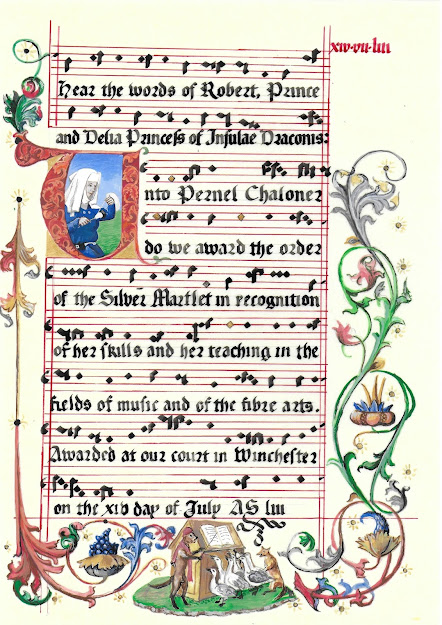 xiv·vii·liii
Hear the words of Robert, Prince
and Delia Princess of Insulae Draconis:
Unto Pernel Chaloner
do we award the order
of the Silver Martlet in recognition
of her skills and her teaching in the
fields of music and of the fibre arts.
Awarded at our court in Winchester
on the xiv day of July AS liii